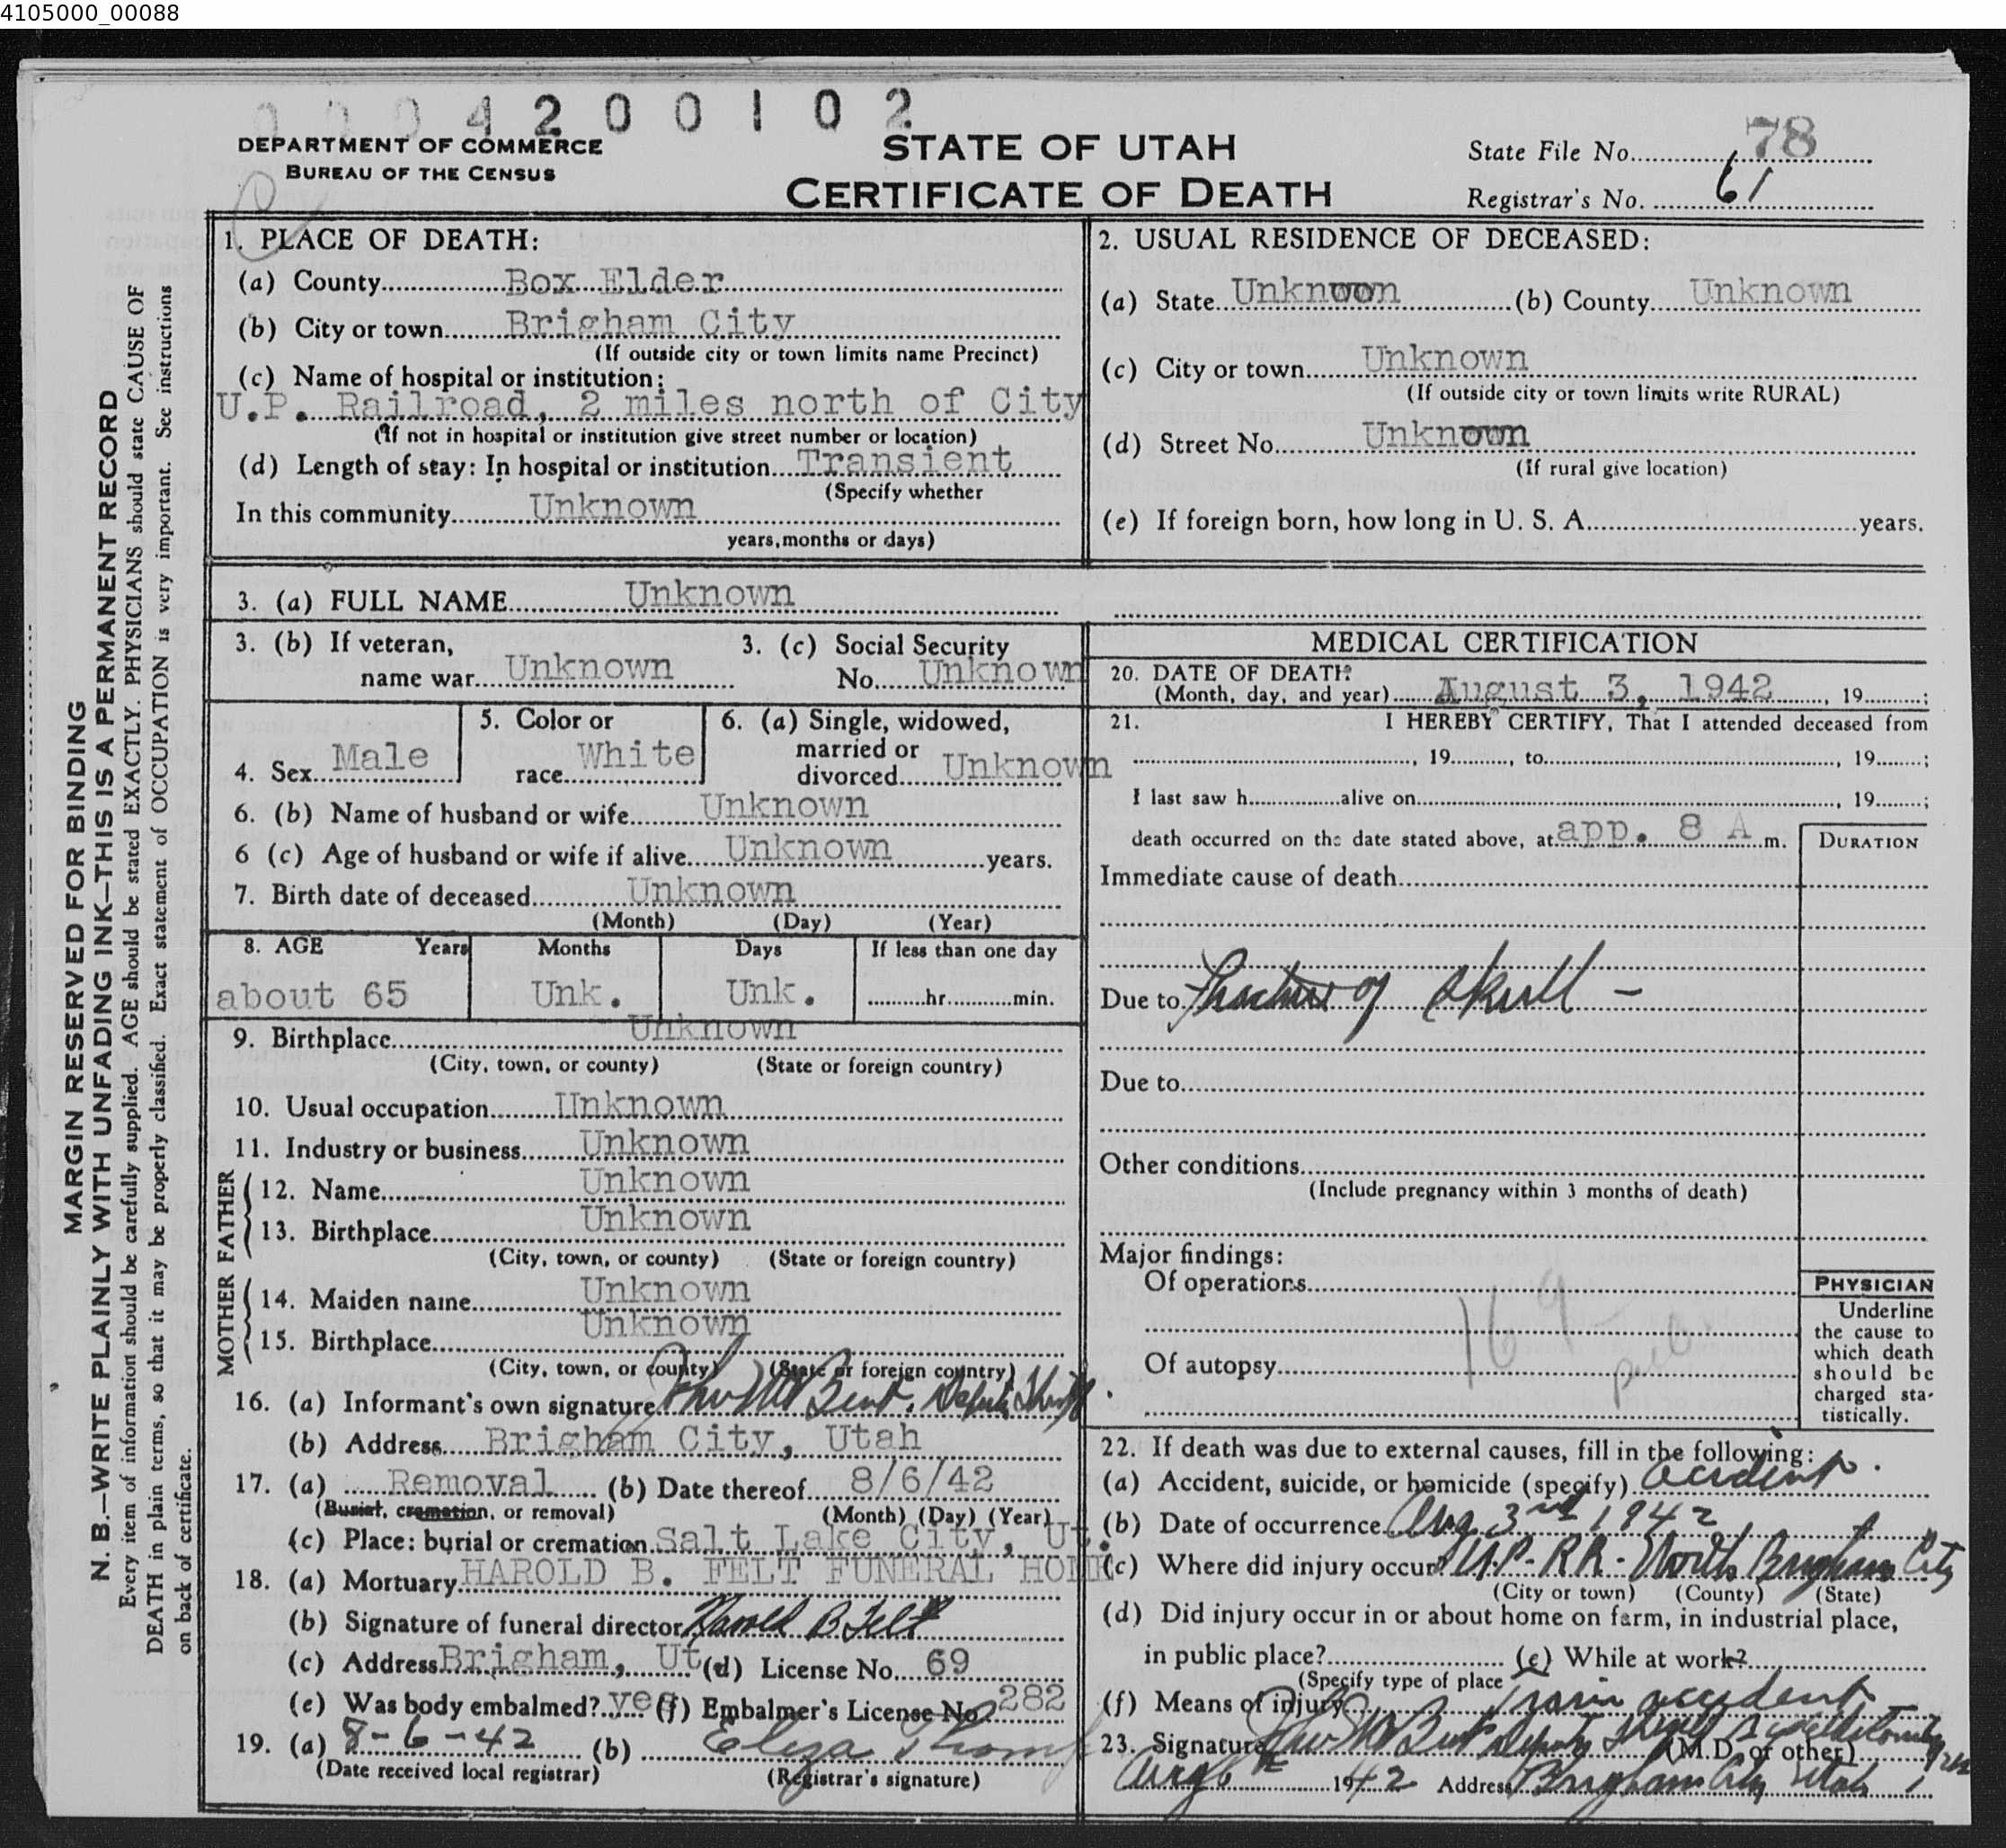 4105000_00088
0004200102
DEPARTMENT OF COMMERCE
BUREAU OF THE CENSUS
STATE OF UTAH
CERTIFICATE OF DEATH
State File No. 78
Registrar's No. 61
MARGIN RESERVED FOR BINDING
N. B.—WRITE PLAINLY WITH UNFADING INK—THIS IS A PERMANENT RECORD
Every item of information should be carefully supplied. AGE should be stated EXACTLY. PHYSICIANS should state CAUSE OF
DEATH in plain terms, so that it may be properly classified. Exact statement of OCCUPATION is very important. See instructions
on back of certificate.
1. PLACE OF DEATH:
(a) County Box Elder
(b) City or town Brigham City
(If outside city or town limits name Precinct)
(c) Name of hospital or institution:
U.P. Railroad, 2 miles north of City
(If not in hospital or institution give street number or location)
(d) Length of stay: In hospital or institution Transient
(Specify whether
In this community Unknown
years, months or days)
2. USUAL RESIDENCE OF DECEASED:
(a) State Unknown (b) County Unknown
(c) City or town Unknown
(If outside city or town limits write RURAL)
(d) Street No. Unknown
(If rural give location)
(e) If foreign born, how long in U. S. A. years.
3. (a) FULL NAME Unknown
3. (b) If veteran,
name war Unknown
3. (c) Social Security
No. Unknown
4. Sex Male
5. Color or
race White
6. (a) Single, widowed,
married or
divorced Unknown
6. (b) Name of husband or wife Unknown
6 (c) Age of husband or wife if alive Unknown years.
7. Birth date of deceased Unknown
(Month) (Day) (Year)
8. AGE Years Months Days If less than one day
about 65 Unk. Unk. hr. min.
9. Birthplace Unknown
(City, town, or county) (State or foreign country)
10. Usual occupation Unknown
11. Industry or business Unknown
FATHER
12. Name Unknown
13. Birthplace Unknown
(City, town, or county) (State or foreign country)
MOTHER
14. Maiden name Unknown
15. Birthplace Unknown
(City, town, or county) (State or foreign country)
16. (a) Informant's own signature Deputy Sheriff
(b) Address Brigham City, Utah
17. (a) Removal (b) Date thereof 8/6/42
(Burial, cremation, or removal) (Month) (Day) (Year)
(c) Place: burial or cremation Salt Lake City, Ut.
18. (a) Mortuary HAROLD B. FELT FUNERAL HOME
(b) Signature of funeral director Harold B Felt
(c) Address Brigham, Ut (d) License No. 69
(e) Was body embalmed? yes (f) Embalmer's License No. 282
19. (a) 8-6-42 (b) Eliza
(Date received local registrar) (Registrar's signature)
MEDICAL CERTIFICATION
20. DATE OF DEATH:
(Month, day, and year) August 3, 1942, 19 ;
21. I HEREBY CERTIFY, That I attended deceased from
, 19 , to , 19 ;
I last saw h alive on , 19 ;
death occurred on the date stated above, at app. 8 A m.
DURATION
Immediate cause of death
Due to Fracture of Skull -
Due to
Other conditions
(Include pregnancy within 3 months of death)
Major findings:
Of operations
169
Of autopsy
PHYSICIAN
Underline
the cause to
which death
should be
charged sta-
tistically.
22. If death was due to external causes, fill in the following:
(a) Accident, suicide, or homicide (specify) accident.
(b) Date of occurrence Aug 3rd 1942
(c) Where did injury occur? U.P. RR. North Brigham City
(City or town) (County) (State)
(d) Did injury occur in or about home on farm, in industrial place,
in public place? (e) While at work?
(Specify type of place
(f) Means of injury Train accident
23. Signature Deputy Sheriff (M.D. or other)
Aug 6 1942 Address Brigham City Utah